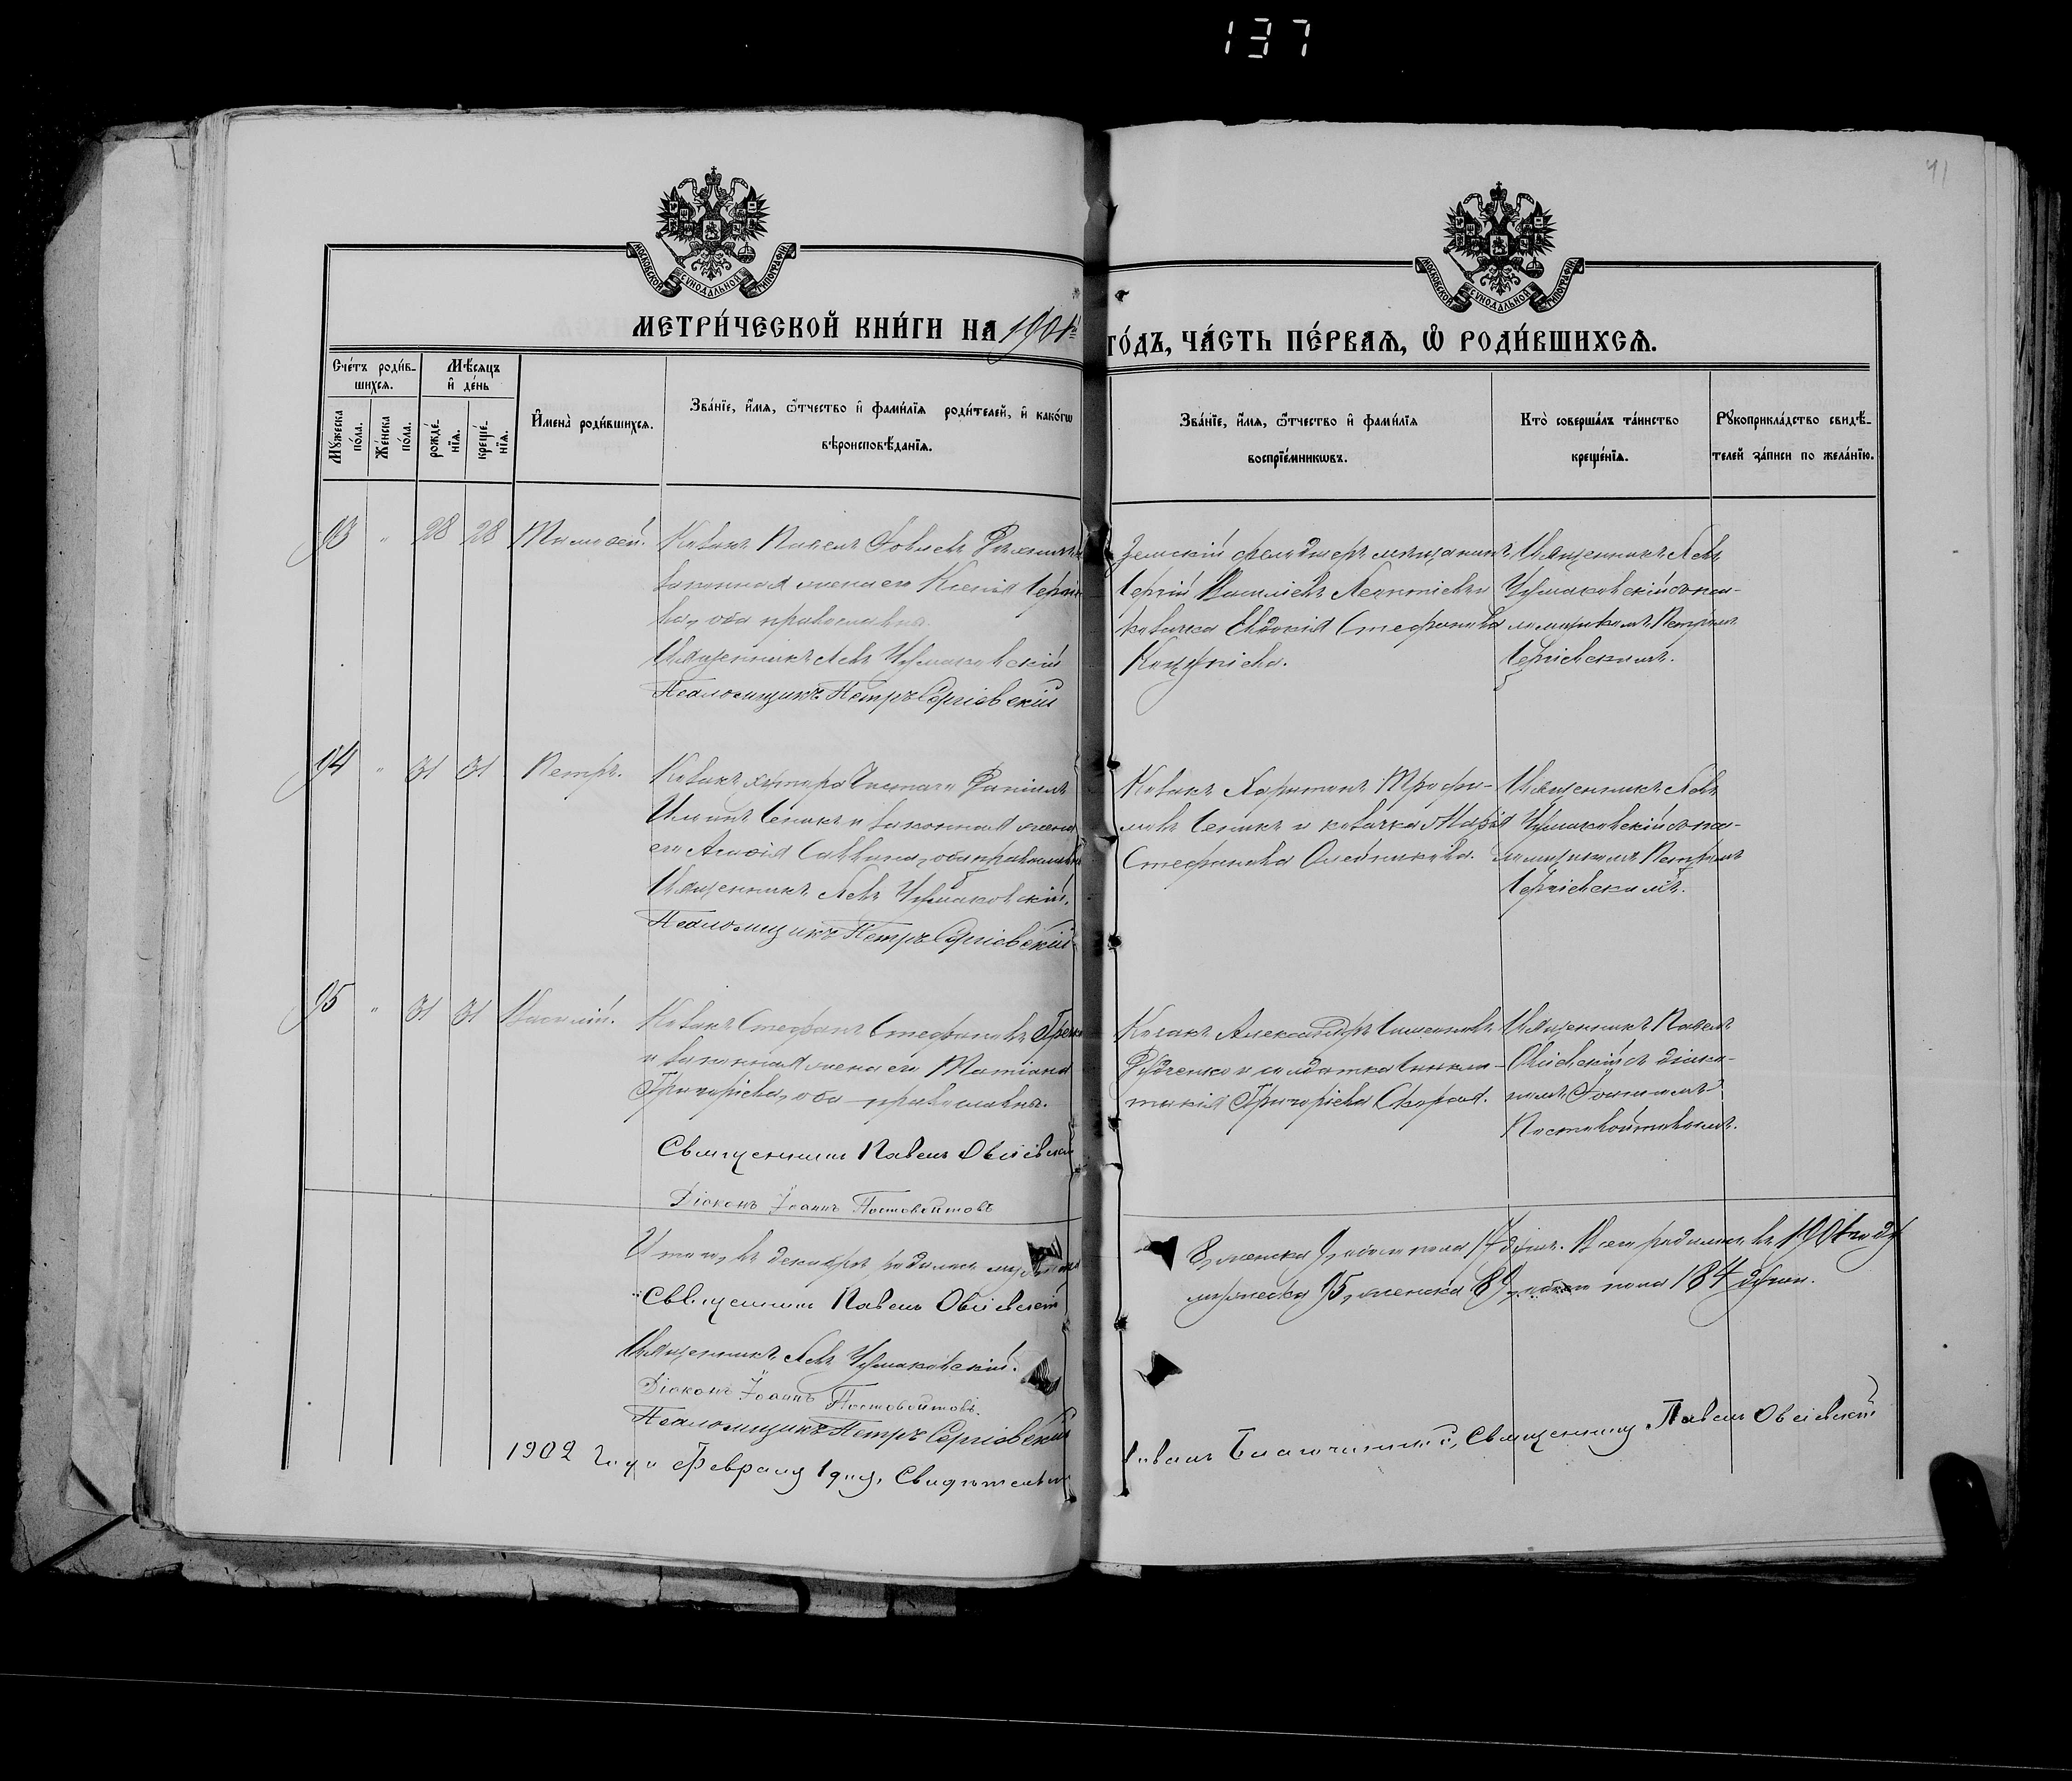 137
41
МОСКОВСКОЙ СѴНОДАЛЬНОЙ ТИПОГРАФІИ
МОСКОВСКОЙ СѴНОДАЛЬНОЙ ТИПОГРАФІИ
МЕТРИ́ЧЕСКОЙ КНИ́ГИ НА 1901й
ГО́ДЪ, ЧА́СТЬ ПЕ́РВАѦ, Ѡ҆ РОДИ́ВШИХСѦ.
Сче́тъ роди́в-
шихсѧ.
Мꙋжеска по́ла.
Же́нска по́ла.
Мѣ́сѧцъ
и҆ де́нь
рожде́-
нїѧ.
креще́-
нїѧ.
И҆мена̀ роди́вшихсѧ.
Зва́нїе, и҆́мѧ, ѻ҆́тчество и҆ фами́лїѧ роди́телей, и҆ како́гѡ
вѣроисповѣ́данїѧ.
Зва́нїе, и҆́мѧ, ѻ҆́тчество и҆ фами́лїѧ
воспрїе́мникѡвъ.
Кто̀ соверша́лъ та́инство
креще́нїѧ.
Рꙋкоприкла́дство свидѣ́-
телей за́писи по жела́нїю.
93 " 28 28 Тимофей. Козакъ Павелъ Іовлевъ
законная жена его Ксенія Сергіе
ва, оба православны.
Священникъ Левъ Чумаковскій
Псаломщикъ Петръ Сергіевскій
Земскій фельдшеръ мѣщанинъ
Сергій Васильевъ Леонтіевъ и
козачка Евдокія Стефанова
Священникъ Левъ
Чумаковскій съ пса-
ломщикомъ Петромъ
Сергіевскимъ.
94 " 31 31 Петръ. Козакъ хутора Даніилъ
и законная жена
его Саввина, оба православны
Священникъ Левъ Чумаковскій.
Псаломщикъ Петръ Сергіевскій
Козакъ Харитонъ Трофи-
мовъ и козачка Марія
Стефанова Олейникова.
Священникъ Левъ
Чумаковскій съ пса-
ломщикомъ Петромъ
Сергіевскимъ.
95 " 31 31 Василій. Козакъ Стефанъ Стефановъ
и законная жена его Татіана
Григоріева, оба православны.
Священникъ Павелъ Овсіевскій
Діаконъ Іоаннъ Постовойтовъ
Козакъ Александръ
Руденко и солдатка Синкли-
тикія Григоріева
Священникъ Павелъ
Овсіевскій съ діако-
номъ Іоанномъ
Постовойтовымъ.
Итого, въ декабрѣ родилось мужеска
8, женска 9, обоего пола 17 душъ. Всего родилось въ 1901 году
мужеска 95, женска 89, обоего пола 184 души.
Священникъ Павелъ Овсіевскій
Священникъ Левъ Чумаковскій.
Діаконъ Іоаннъ Постовойтовъ.
Псаломщикъ Петръ Сергіевскій
1902 года Февраля 1 дня, Свидѣтельст
вовалъ Благочинный, Священникъ Павелъ Овсіевскій